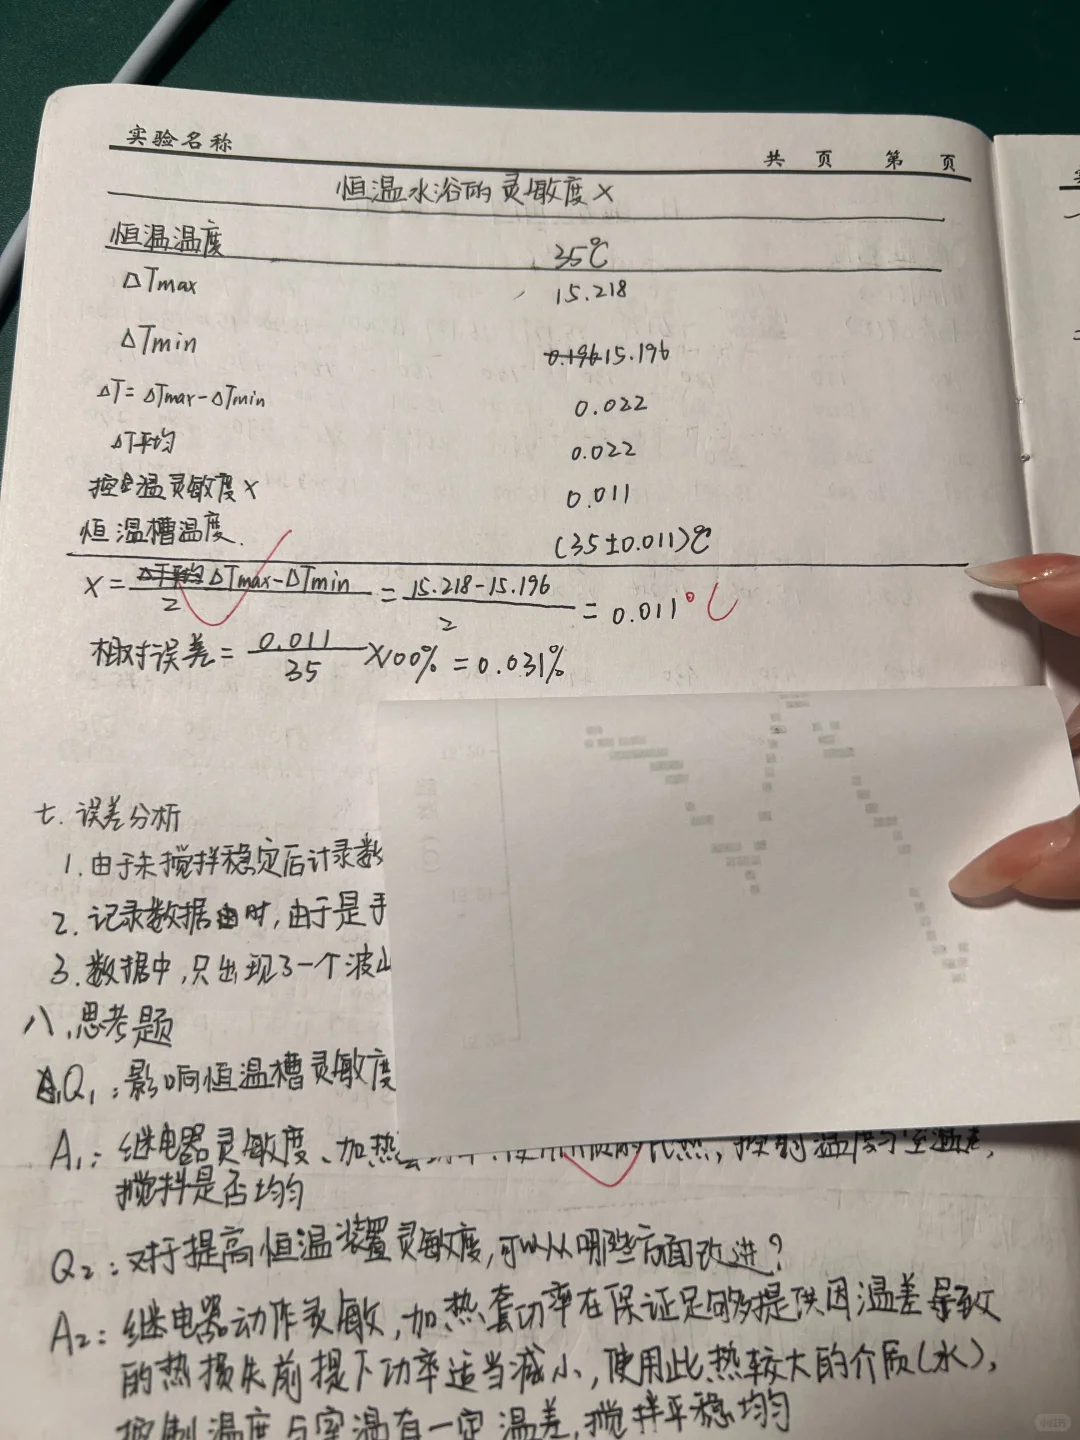 实验名称
共 页 第 页
恒温水浴的灵敏度X
恒温温度 35℃
ΔTmax 15.218
ΔTmin 0.196 15.196
ΔT=ΔTmax-ΔTmin 0.022
ΔT平均 0.022
控温灵敏度X 0.011
恒温槽温度. (35±0.011)℃
X = ΔT平均 ΔTmax-ΔTmin / 2 = 15.218-15.196 / 2 = 0.011℃
相对误差 = 0.011 / 35 ×100% = 0.031%
七. 误差分析
1. 由于未搅拌稳定后计录数
2. 记录数据由时,由于是手
3. 数据中,只出现了一个波
八.思考题
Q1:影响恒温槽灵敏度
A1:继电器灵敏度、加热
搅拌是否均匀
Q2:对于提高恒温装置灵敏度,可以从哪些方面改进?
A2:继电器动作灵敏,加热套功率在保证足够多提供因温差导致
的热损失前提下功率适当减小,使用比热较大的介质(水),
控制温度与室温有一定温差,搅拌平稳均匀